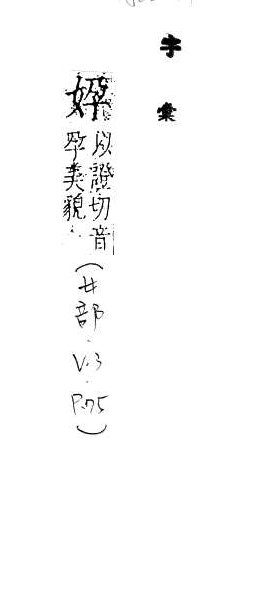 字彙
㚺
以證切音
孕美貌
(女部.V.3.P.75)